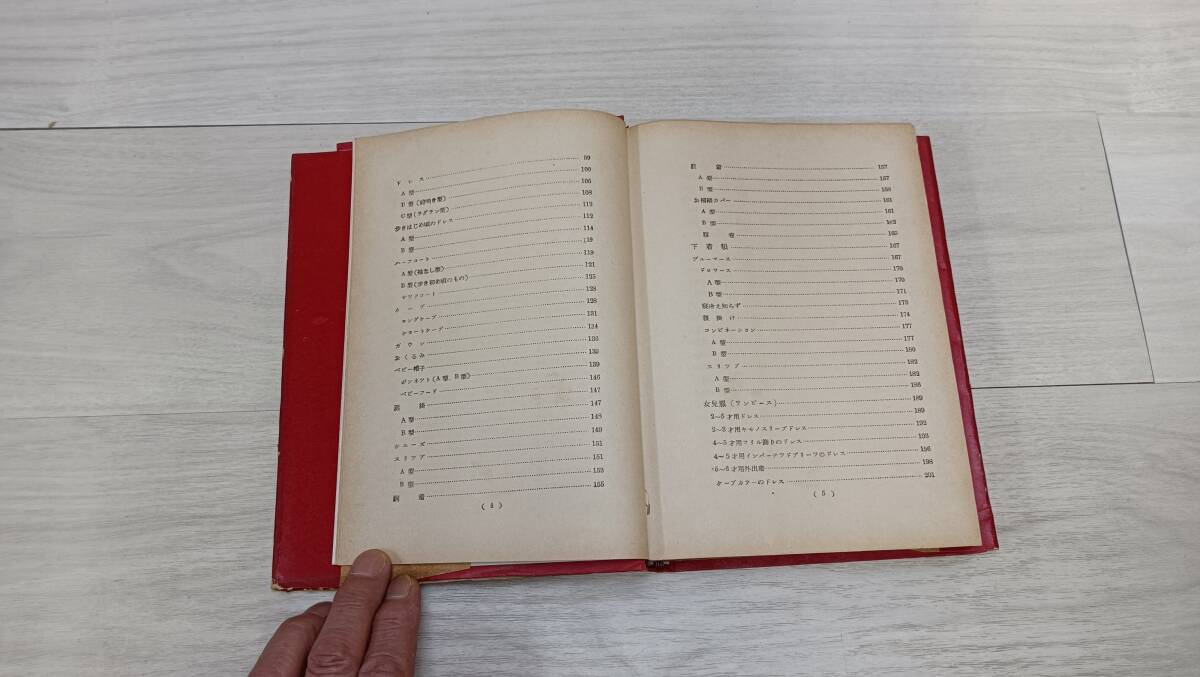 ドレス 99
A型 100
B型(前明き型) 106
C型(ラグラン型) 108
歩きはじめ頃のドレス 112
A型 112
B型 114
ハーフコート 119
A型(袖なし型) 119
B型(歩き初め頃のもの) 121
サックコート 125
ケープ 128
ロングケープ 128
ショートケープ 131
ガウン 134
おくるみ 136
ベビー帽子 139
ボンネット(A型、B型) 139
ベビーフード 146
涎掛 147
A型 147
B型 148
シューズ 149
スリップ 151
A型 151
B型 153
胴着 155
(4)
肌着 157
A型 157
B型 158
お襁褓カバー 161
A型 161
B型 162
腹巻 165
下着類 167
ブルーマース 167
ドロワース 170
A型 170
B型 171
寝冷え知らず 173
腹掛け 174
コンビネーション 177
A型 177
B型 180
スリップ 182
A型 182
B型 186
女兒服(ワンピース) 189
2〜5才用ドレス 189
2〜3才用キモノスリーブドレス 192
4〜5才用フリル飾りのドレス 193
4〜5才用インバーテツドプリーツのドレス 196
5〜6才用外出着 198
ケープカラーのドレス 201
(5)